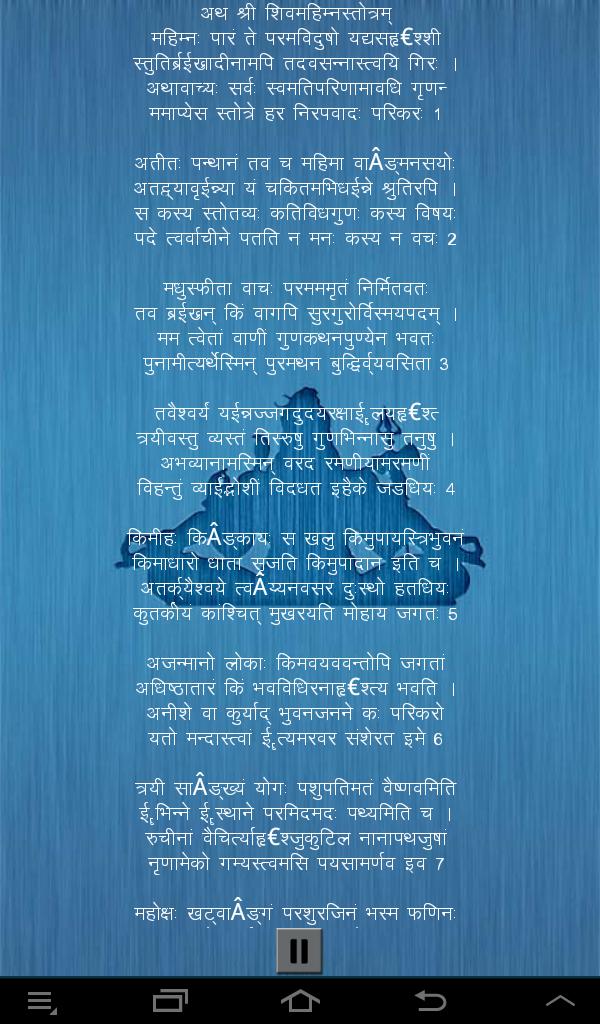 अथ श्री शिवमहिम्नस्तोत्रम्
महिम्नः पारं ते परमविदुषो यद्यसहृ€श्शी
स्तुतिर्ब्रईखादीनामपि तदवसन्नास्त्वयि गिरः ।
अथावाच्यः सर्वः स्वमतिपरिणामावधि गृणन्
ममाप्येस स्तोत्रे हर निरपवादः परिकरः 1
अतीतः पन्थानं तव च महिमा वाÂङ्मनसयोः
अतद्व्यावृईन्र्या यं चकितमभिधईन्ने श्रुतिरपि ।
स कस्य स्तोतव्यः कतिविधगुणः कस्य विषयः
पदे त्वर्वाचीने पतति न मनः कस्य न वचः 2
मधुस्फीता वाचः परमममृतं निर्मितवतः
तव ब्रईखन् किं वागपि सुरगुरोर्विस्मयपदम् ।
मम त्वेतां वाणीं गुणकथनपुण्येन भवतः
पुनामीत्यर्थेस्मिन् पुरमथन बुद्धिर्व्यवसिता 3
तवैश्वर्यं यईन्नज्जगदुदयरक्षाई्रलयहृ€श्त्
त्रयीवस्तु व्यस्तं तिस्रुषु गुणभिन्नासु तनुषु ।
अभव्यानामस्मिन् वरद रमणीयामरमणीं
विहन्तुं व्याईद्भाशीं विदधत इहैके जडधियः 4
किमीहः किÂङ्कायः स खलु किमुपायस्त्रिभुवनं
किमाधारो धाता सृजति किमुपादान इति च ।
अतर्क्यैश्वर्ये त्वÂय्यनवसर दुःस्थो हतधियः
कुतर्कोयं कांश्चित् मुखरयति मोहाय जगतः 5
अजन्मानो लोकाः किमवयववन्तोपि जगतां
अधिष्ठातारं किं भवविधिरनाहृ€श्त्य भवति ।
अनीशे वा कुर्याद् भुवनजनने कः परिकरो
यतो मन्दास्त्वां ई्रत्यमरवर संशेरत इमे 6
त्रयी साÂङ्ख्यं योगः पशुपतिमतं वैष्णवमिति
ई्रभिन्ने ई्रस्थाने परमिदमदः पथ्यमिति च ।
रुचीनां वैचित्र्याहृ€श्जुकुटिल नानापथजुषां
नृणामेको गम्यस्त्वमसि पयसामर्णव इव 7
महोक्षः खट्वाÂङ्गं परशुरजिनं भस्म फणिनः